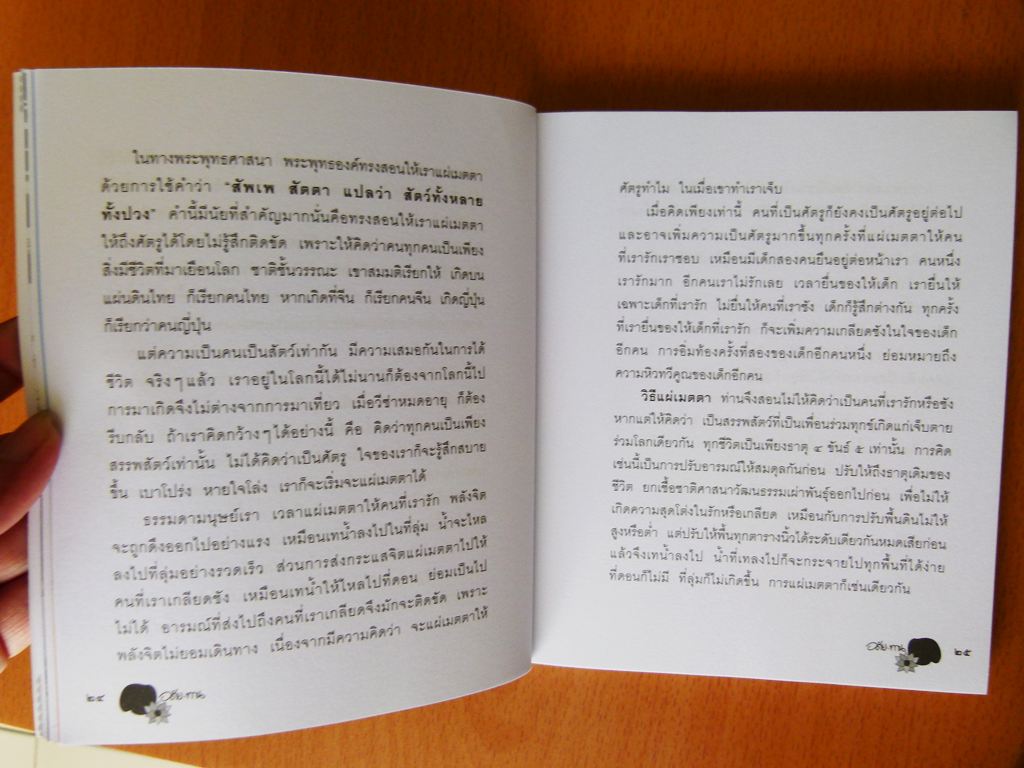 ในทางพระพุทธศาสนา พระพุทธองค์ทรงสอนให้เราแผ่เมตตา
ด้วยการใช้คำว่า "สัพเพ สัตตา แปลว่า สัตว์ทั้งหลาย
ทั้งปวง" คำนี้มีนัยที่สำคัญมากนั่นคือทรงสอนให้เราแผ่เมตตา
ให้ถึงศัตรูได้โดยไม่รู้สึกติดขัด เพราะให้คิดว่าคนทุกคนเป็นเพียง
สิ่งมีชีวิตที่มาเยือนโลก ชาติชั้นวรรณะ เขาสมมติเรียกให้ เกิดบน
แผ่นดินไทย ก็เรียกคนไทย หากเกิดที่จีน ก็เรียกคนจีน เกิดญี่ปุ่น
ก็เรียกว่าคนญี่ปุ่น
แต่ความเป็นคนเป็นสัตว์เท่ากัน มีความเสมอกันในการได้
ชีวิต จริงๆแล้ว เราอยู่ในโลกนี้ได้ไม่นานก็ต้องจากโลกนี้ไป
การมาเกิดจึงไม่ต่างจากการมาเที่ยว เมื่อวีซ่าหมดอายุ ก็ต้อง
รีบกลับ ถ้าเราคิดกว้างๆได้อย่างนี้ คือ คิดว่าทุกคนเป็นเพียง
สรรพสัตว์เท่านั้น ไม่ได้คิดว่าเป็นศัตรู ใจของเราก็จะรู้สึกสบาย
ขึ้น เบาโปร่ง หายใจโล่ง เราก็จะเริ่มจะแผ่เมตตาได้
ธรรมดามนุษย์เรา เวลาแผ่เมตตาให้คนที่เรารัก พลังจิต
จะถูกดึงออกไปอย่างแรง เหมือนเทน้ำลงไปในที่ลุ่ม น้ำจะไหล
ลงไปที่ลุ่มอย่างรวดเร็ว ส่วนการส่งกระแสจิตแผ่เมตตาไปให้
คนที่เราเกลียดชัง เหมือนเทน้ำให้ไหลไปที่ดอน ย่อมเป็นไป
ไม่ได้ อารมณ์ที่ส่งไปถึงคนที่เราเกลียดจึงมักจะติดขัด เพราะ
พลังจิตไม่ยอมเดินทาง เนื่องจากมีความคิดว่า จะแผ่เมตตาให้
๒๔
ศัตรูทำไม ในเมื่อเขาทำเราเจ็บ
เมื่อคิดเพียงเท่านี้ คนที่เป็นศัตรูก็ยังคงเป็นศัตรูอยู่ต่อไป
และอาจเพิ่มความเป็นศัตรูมากขึ้นทุกครั้งที่แผ่เมตตาให้คน
ที่เรารักเราชอบ เหมือนมีเด็กสองคนยืนอยู่ต่อหน้าเรา คนหนึ่ง
เรารักมาก อีกคนเราไม่รักเลย เวลายื่นของให้เด็ก เรายื่นให้
เฉพาะเด็กที่เรารัก ไม่ยื่นให้คนที่เราชัง เด็กก็รู้สึกต่างกัน ทุกครั้ง
ที่เรายื่นของให้เด็กที่เรารัก ก็จะเพิ่มความเกลียดชังในใจของเด็ก
อีกคน การอิ่มท้องครั้งที่สองของเด็กอีกคนหนึ่ง ย่อมหมายถึง
ความหิวทวีคูณของเด็กอีกคน
วิธีแผ่เมตตา ท่านจึงสอนไม่ให้คิดว่าเป็นคนที่เรารักหรือชัง
หากแต่ให้คิดว่า เป็นสรรพสัตว์ที่เป็นเพื่อนร่วมทุกข์เกิดแก่เจ็บตาย
ร่วมโลกเดียวกัน ทุกชีวิตเป็นเพียงธาตุ ๔ ขันธ์ ๕ เท่านั้น การคิด
เช่นนี้เป็นการปรับอารมณ์ให้สมดุลกันก่อน ปรับให้ถึงธาตุเดิมของ
ชีวิต ยกเชื้อชาติศาสนาวัฒนธรรมเผ่าพันธุ์ออกไปก่อน เพื่อไม่ให้
เกิดความสุดโต่งในรักหรือเกลียด เหมือนกับการปรับพื้นดินไม่ให้
สูงหรือต่ำ แต่ปรับให้พื้นทุกตารางนิ้วได้ระดับเดียวกันหมดเสียก่อน
แล้วจึงเทน้ำลงไป น้ำที่เทลงไปก็จะกระจายไปทุกพื้นที่ได้ง่าย
ที่ดอนก็ไม่มี ที่ลุ่มก็ไม่เกิดขึ้น การแผ่เมตตาก็เช่นเดียวกัน
๒๕